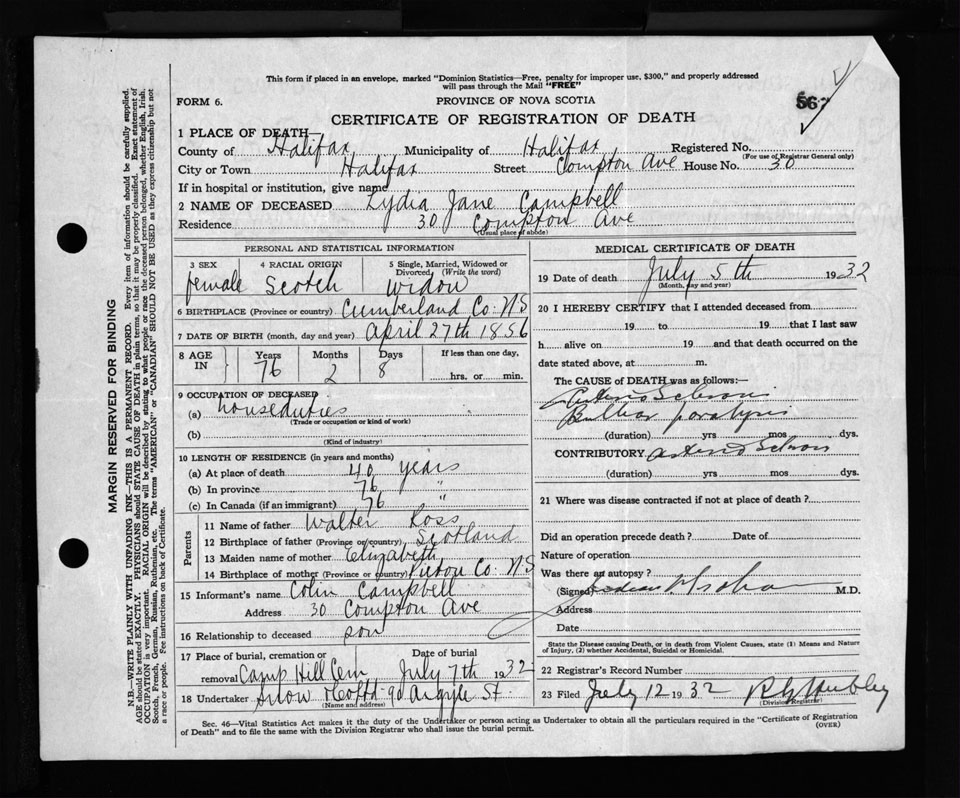 This form if placed in an envelope, marked "Dominion Statistics—Free, penalty for improper use, $300," and properly addressed
will pass through the Mail "FREE"
FORM 6.
PROVINCE OF NOVA SCOTIA
CERTIFICATE OF REGISTRATION OF DEATH
567
1 PLACE OF DEATH—
County of Halifax Municipality of Halifax Registered No.
(For use of Registrar General only)
City or Town Halifax Street Compton Ave House No. 30
If in hospital or institution, give name
2 NAME OF DECEASED Lydia Jane Campbell
Residence 30 Compton Ave
(Usual place of abode)
PERSONAL AND STATISTICAL INFORMATION
3 SEX 4 RACIAL ORIGIN 5 Single, Married, Widowed or
Divorced, (Write the word)
female Scotch Widow
6 BIRTHPLACE (Province or country) Cumberland Co. NS
7 DATE OF BIRTH (month, day and year) April 27th 1856
8 AGE IN Years Months Days If less than one day,
76 2 8 hrs. or min.
9 OCCUPATION OF DECEASED
(a) houseduties
(Trade or occupation or kind of work)
(b)
(Kind of industry)
10 LENGTH OF RESIDENCE (in years and months)
(a) At place of death 40 years
(b) In province 76 "
(c) In Canada (if an immigrant) 76 "
Parents
11 Name of father Walter Ross
12 Birthplace of father (Province or country) Scotland
13 Maiden name of mother Elizabeth
14 Birthplace of mother (Province or country) Pictou Co. NS
15 Informant's name Colin Campbell
Address 30 Compton Ave
16 Relationship to deceased son
17 Place of burial, cremation or Date of burial
removal Camp Hill Cem July 7th 1932
18 Undertaker Snow & Co Ltd 90 Argyle St.
(Name and address)
MEDICAL CERTIFICATE OF DEATH
19 Date of death July 5th 1932
(Month, day and year)
20 I HEREBY CERTIFY that I attended deceased from
19 to 19 that I last saw
h alive on 19 and that death occurred on the
date stated above, at m.
The CAUSE of DEATH was as follows:—
Bulbar paralysis
(duration) yrs mos dys.
CONTRIBUTORY
(duration) yrs mos dys.
21 Where was disease contracted if not at place of death?
Did an operation precede death? Date of
Nature of operation
Was there an autopsy?
(Signed) M.D.
Address
Date
State the Disease causing Death, or in death from Violent Causes, state (1) Means and Nature
of Injury, (2) whether Accidental, Suicidal or Homicidal.
22 Registrar's Record Number
23 Filed July 12 1932
(Division Registrar)
Sec. 46—Vital Statistics Act makes it the duty of the Undertaker or person acting as Undertaker to obtain all the particulars required in the "Certificate of Registration
of Death" and to file the same with the Division Registrar who shall issue the burial permit.
(OVER)
MARGIN RESERVED FOR BINDING
N.B.—WRITE PLAINLY WITH UNFADING INK—THIS IS A PERMANENT RECORD. Every item of information should be carefully supplied.
AGE should be stated EXACTLY. PHYSICIANS should STATE CAUSE OF DEATH in plain terms, so that it may be properly classified. Exact statement of
OCCUPATION is very important. RACIAL ORIGIN will be described by stating to what people or race the deceased person belonged, whether English, Irish,
Scotch, French, German, Russian, Ruthenian, etc. The terms "AMERICAN" or "CANADIAN" SHOULD NOT BE USED as they express citizenship but not
a race or people. Fee instructions on back of Certificate.